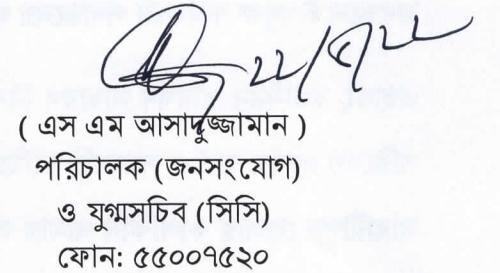 ২২/৫/২২
( এস এম আসাদুজ্জামান )
পরিচালক (জনসংযোগ)
ও যুগ্মসচিব (সিসি)
ফোন: ৫৫০০৭৫২০